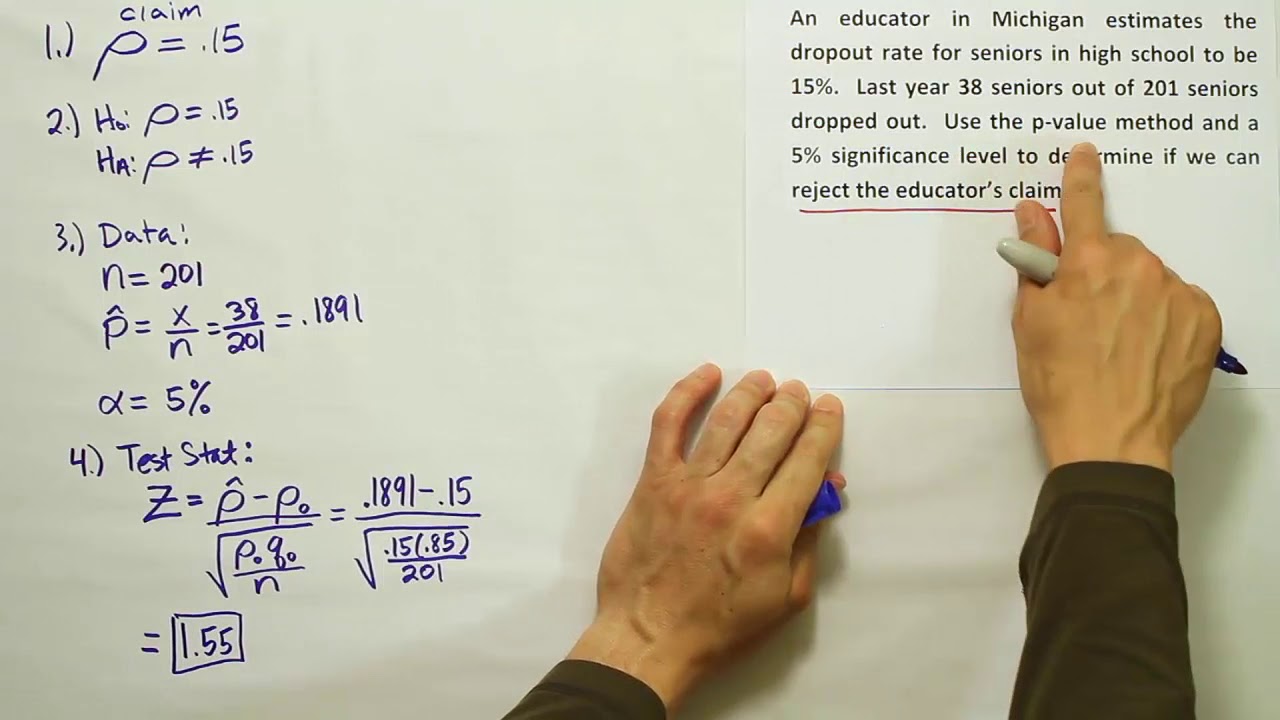 claim
1.) p = .15
2.) H₀: p = .15
Hᴀ: p ≠ .15
3.) Data:
n = 201
p̂ = x/n = 38/201 = .1891
α = 5%
4.) Test Stat:
Z = (p̂ - p₀)/√(p₀q₀/n) = (.1891 - .15)/√(.15(.85)/201)
= 1.55
An educator in Michigan estimates the
dropout rate for seniors in high school to be
15%. Last year 38 seniors out of 201 seniors
dropped out. Use the p-value method and a
5% significance level to determine if we can
reject the educator's claim